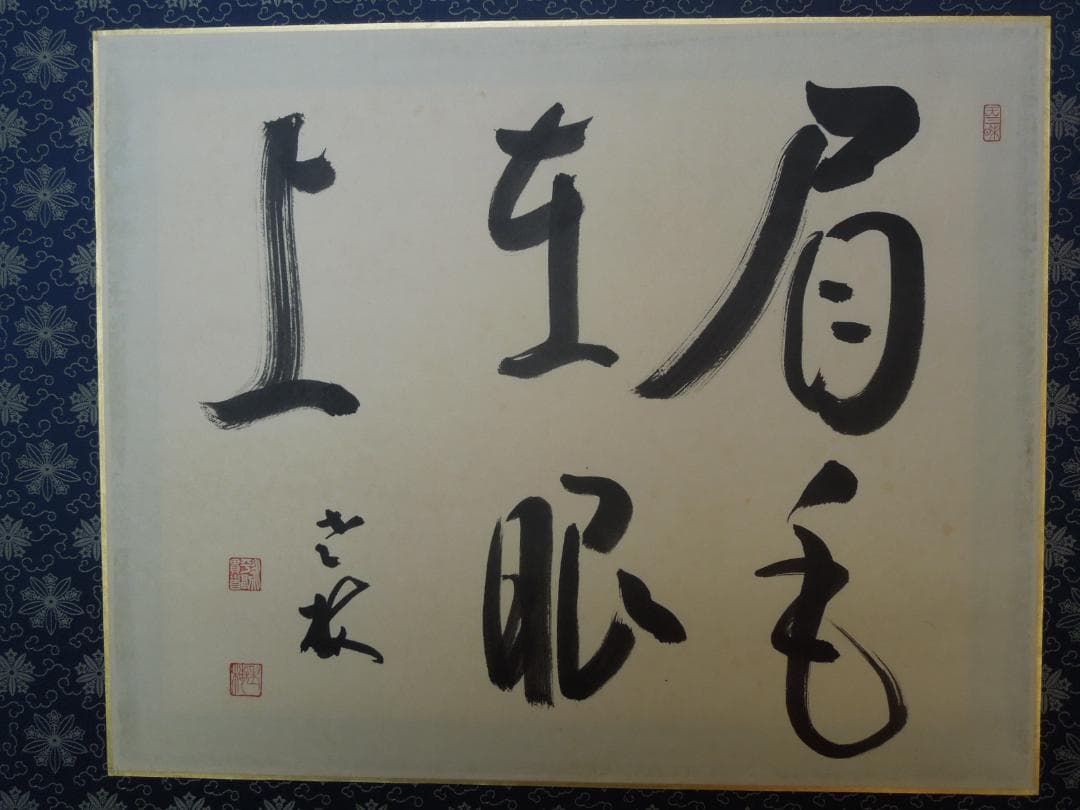 眉毛
在眼
上